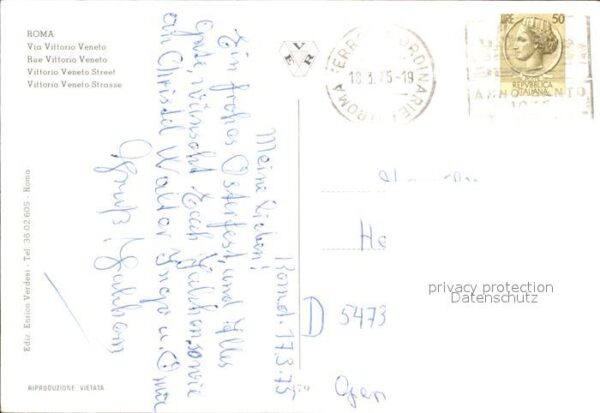 ROMA
Via Vittorio Veneto
Rue Vittorio Veneto
Vittorio Veneto Street
Vittorio Veneto Strasse
VER
ROMA FERROVIA ORDINARIE
18.3.75-19
LIRE 50
REPVBBLICA
ITALIANA
ANNO SANTO
1975
Rom d. 17.3.75
Meine Lieben!
Ein frohes Osterfest, und Alles
gute, wünscht Euch sowie
an Christel Walter Inge u. Oma
Gruß!
D
5473
He
privacy protection
Datenschutz
Ediz. Enrico Verdesi - Tel. 36.02.605 - Roma
RIPRODUZIONE VIETATA